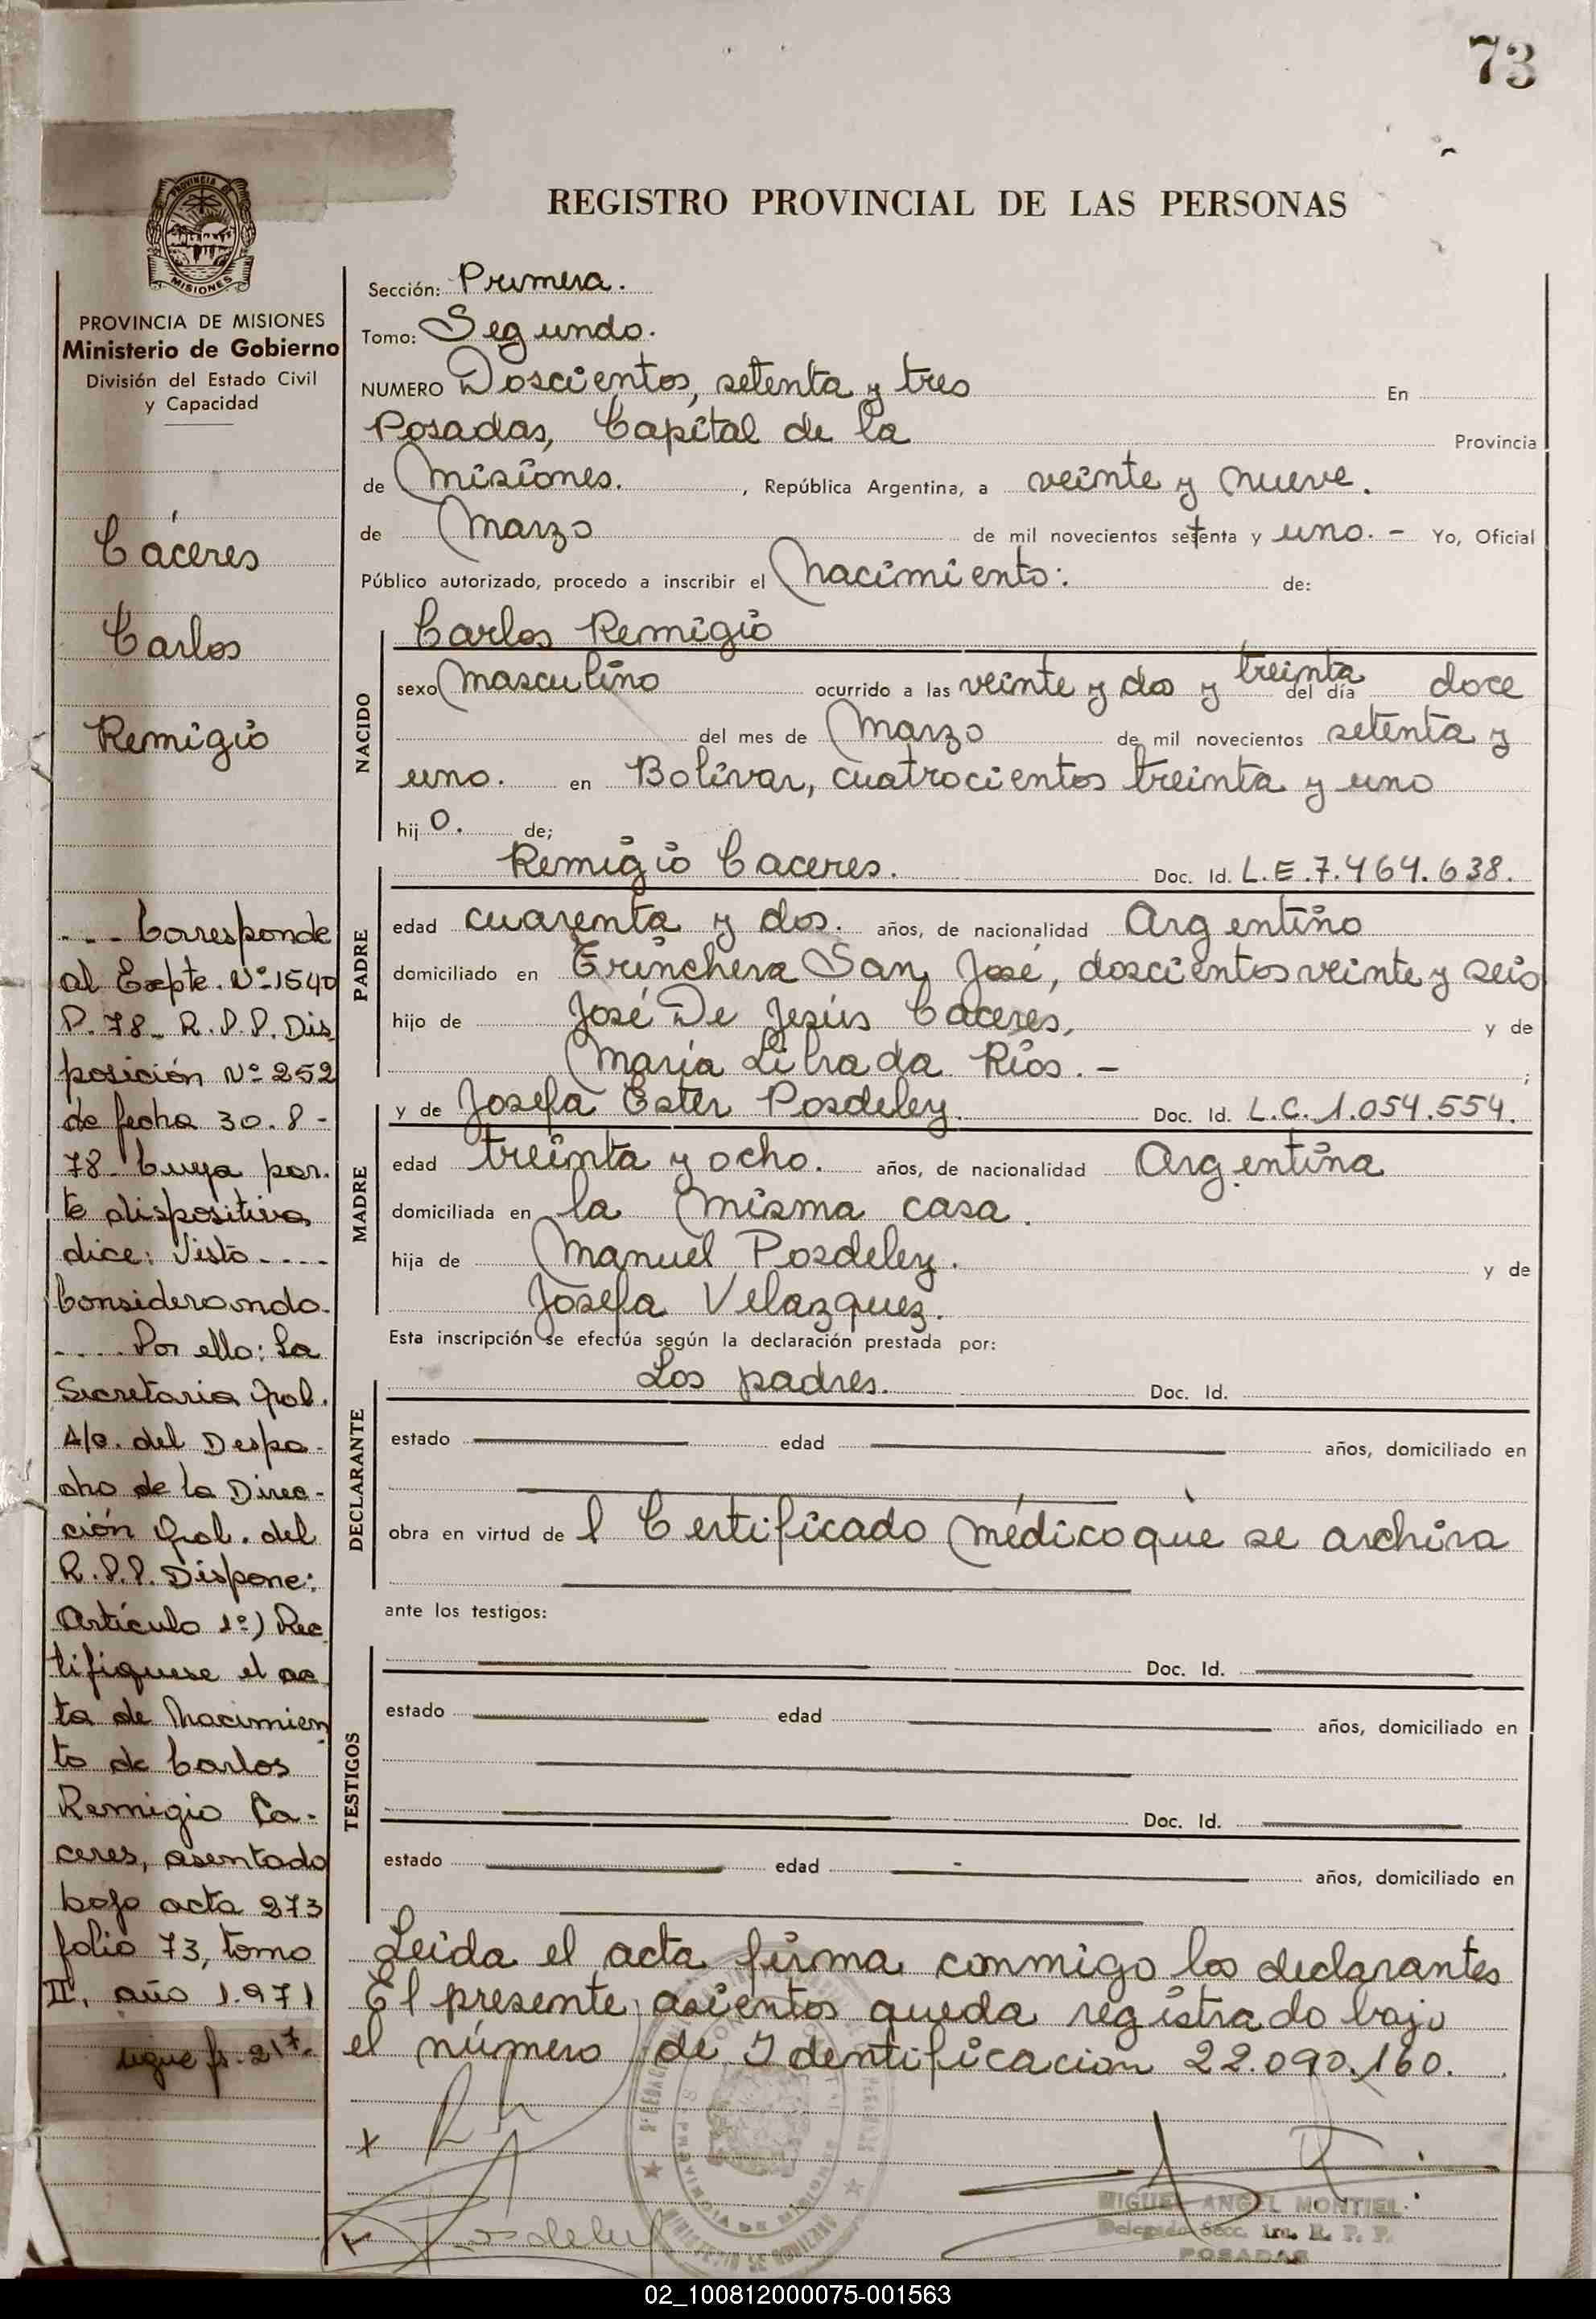 73
REGISTRO PROVINCIAL DE LAS PERSONAS
PROVINCIA DE
MISIONES
PROVINCIA DE MISIONES
Ministerio de Gobierno
División del Estado Civil
y Capacidad
Cáceres
Carlos
Remigio
---- Corresponde
al Expte. Nº 1540
P. 78 - R.P.P. Dis
posición Nº 252
de fecha 30.8-
78- Cuya par-
te dispositiva
dice: Visto ----
Considerando-
---- Por ello: La
Secretaria Gral.
A/c. del Despa-
cho de la Direc-
ción Gral. del
R.P.P. Dispone:
Artículo 1º) Rec
tifiquese el ac
ta de Nacimien
to de Carlos
Remigio Ca-
ceres, asentado
bajo acta 273
folio 73, tomo
II, año 1.971
sigue fs. 217-
Sección: Primera.
Tomo: Segundo.
NUMERO Doscientos, setenta y tres En
Posadas, Capital de la Provincia
de Misiones. , República Argentina, a veinte y nueve.
de Marzo de mil novecientos setenta y uno. - Yo, Oficial
Público autorizado, procedo a inscribir el Nacimiento: de:
NACIDO
Carlos Remigio
sexo Masculino ocurrido a las veinte y dos y treinta del día doce
del mes de Marzo de mil novecientos setenta y
uno. en Bolívar, cuatrocientos treinta y uno
hij o. de;
PADRE
Remigio Caceres. Doc. Id. L.E.7.464.638.
edad cuarenta y dos. años, de nacionalidad Argentino
domiciliado en Trinchera San José, doscientos veinte y seis
hijo de José De Jesús Caceres, y de
María Librada Ríos. - ;
MADRE
y de Josefa Ester Posdeley. Doc. Id. L.C. 1.054.554.
edad treinta y ocho. años, de nacionalidad Argentina
domiciliada en la misma casa.
hija de Manuel Posdeley. y de
Josefa Velazquez.
Esta inscripción se efectúa según la declaración prestada por:
DECLARANTE
Los padres. Doc. Id.
estado edad años, domiciliado en
obra en virtud de l Certificado Médico que se archiva
ante los testigos:
TESTIGOS
Doc. Id.
estado edad años, domiciliado en
Doc. Id.
estado edad años, domiciliado en
Leida el acta firma conmigo los declarantes
El presente asientos queda registrado bajo
el número de Identificacion 22.090.160.
x
Posdeley
MIGUEL ANGEL MONTIEL
Delegado Secc. 1ra. R. P. P.
POSADAS
02_100812000075-001563